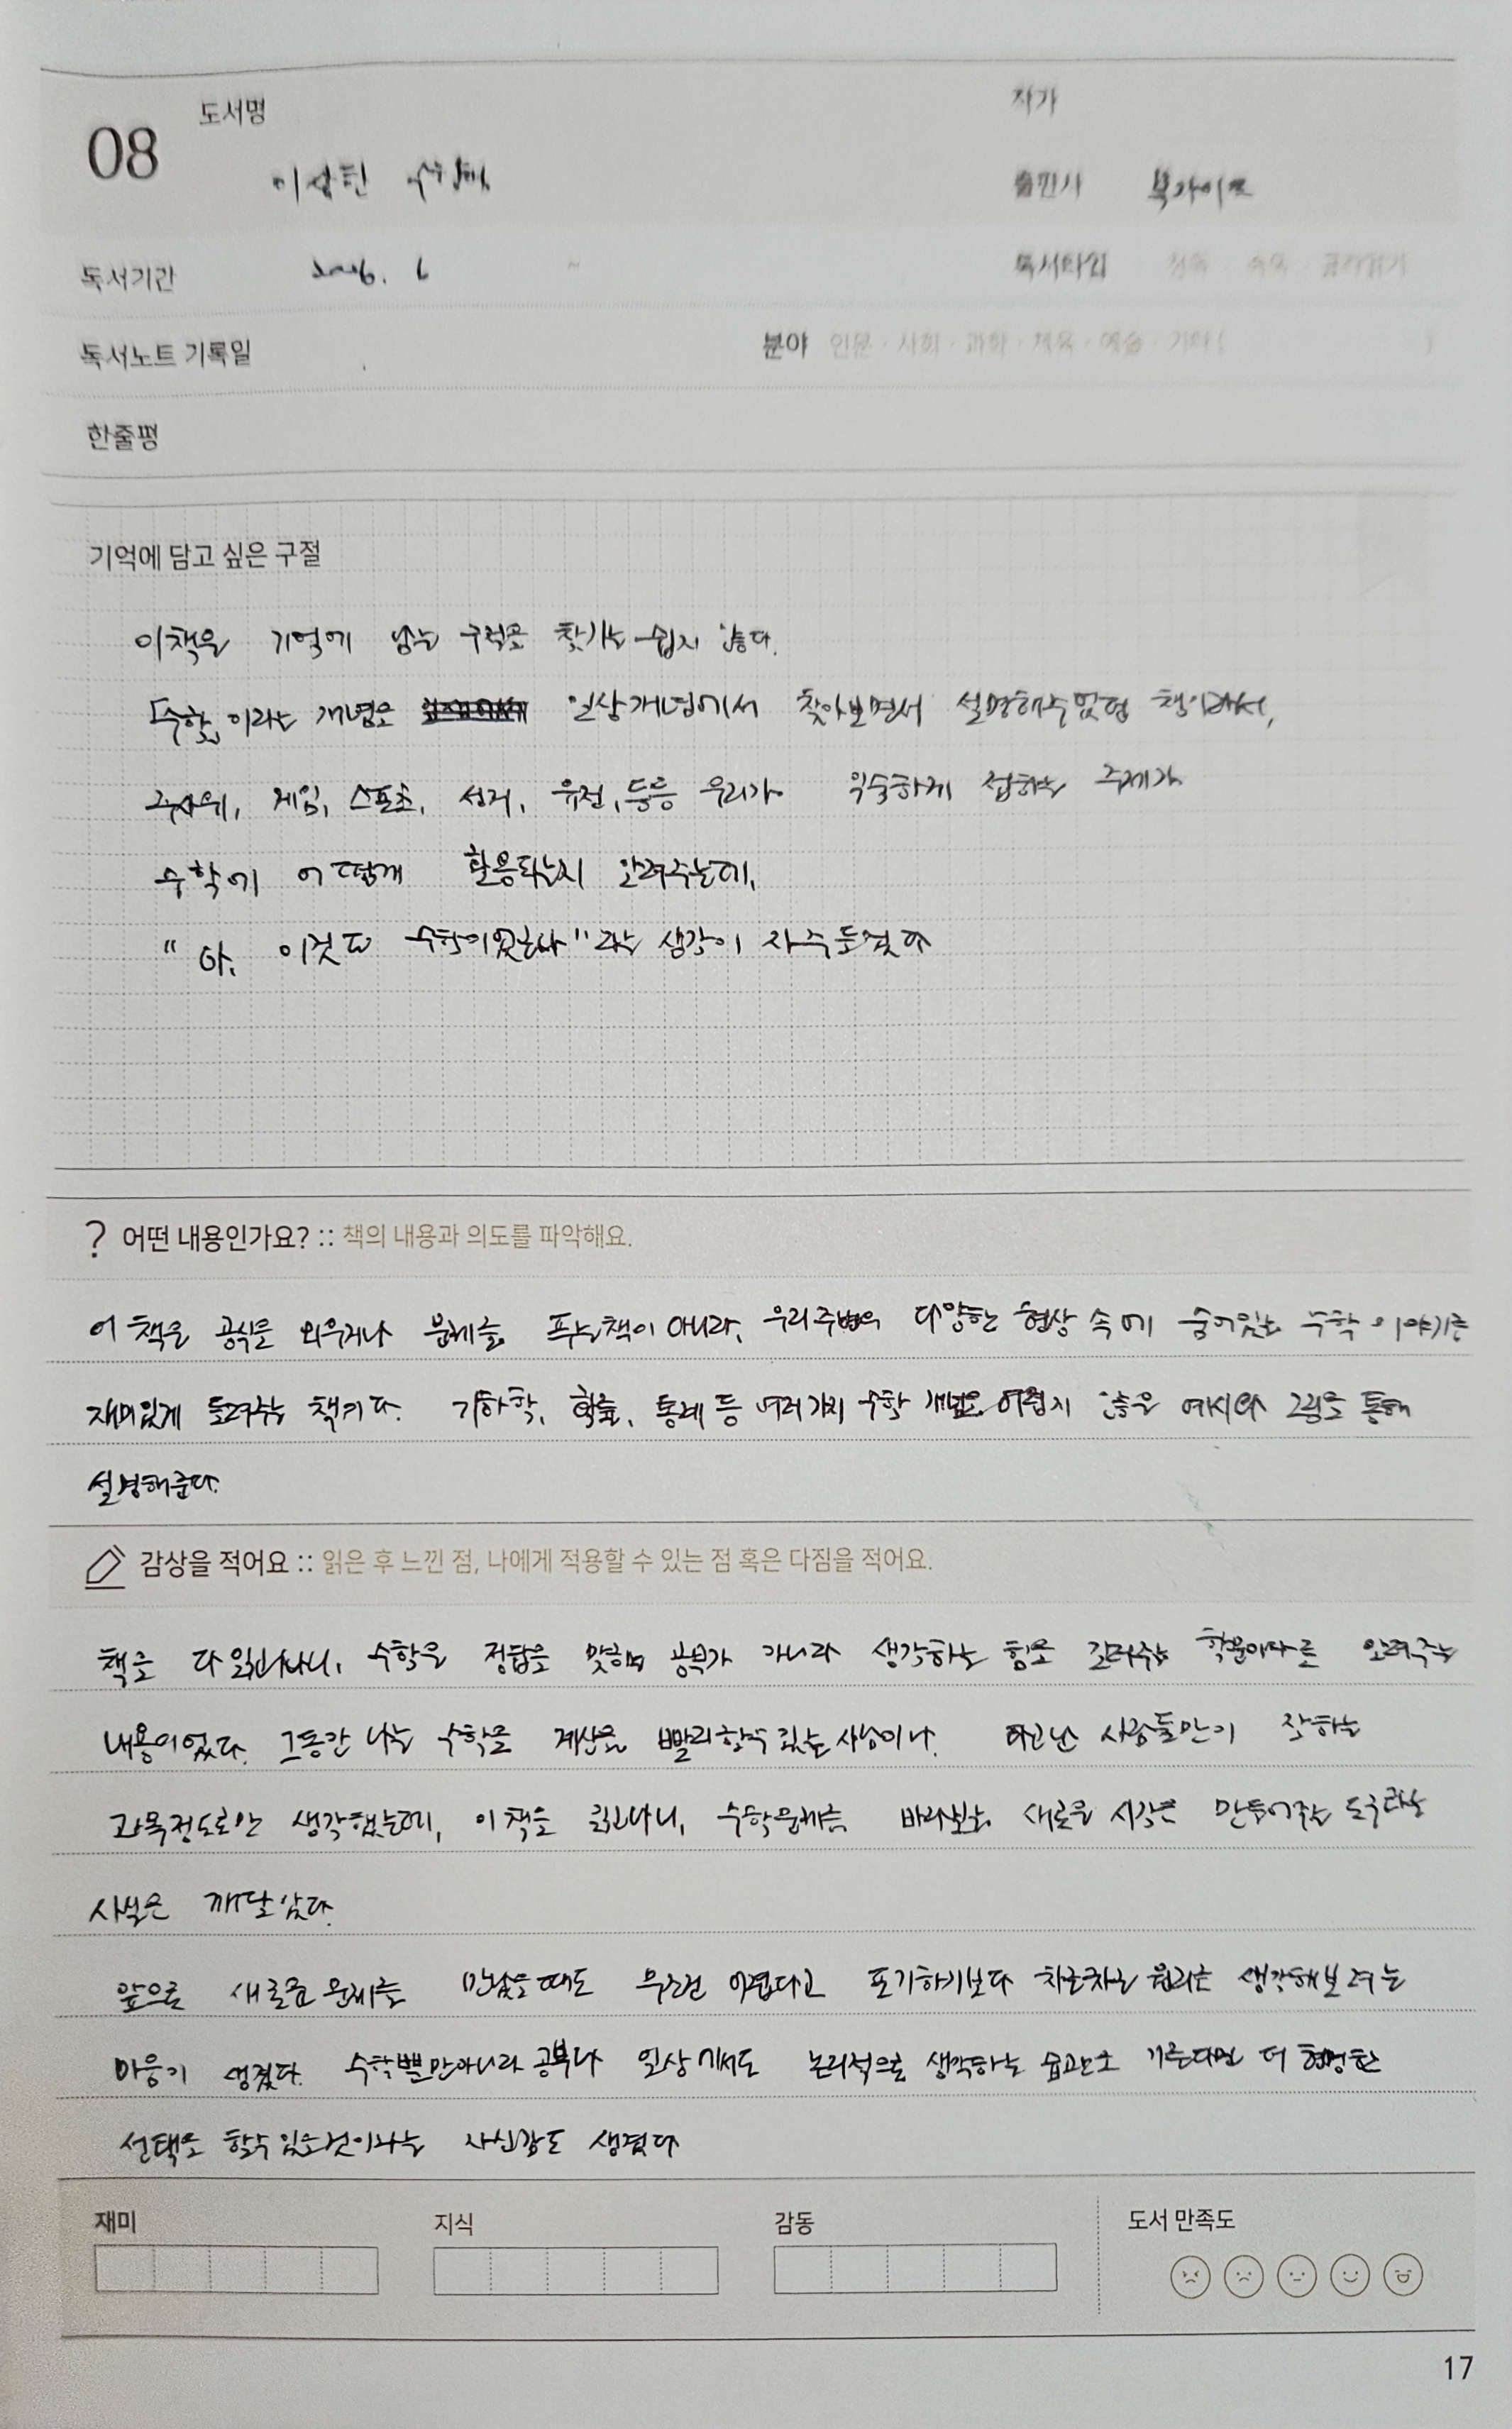 08 도서명 작가
이상한 수학책
출판사 북라이프
독서기간 2026. 6 ~ 독서타입 정독 · 속독 · 골라읽기
독서노트 기록일 분야 인문 · 사회 · 과학 · 체육 · 예술 · 기타( )
한줄평
기억에 담고 싶은 구절
이책은 기억에 남는 구절을 찾기는 쉽지 않다.
「수학」이라는 개념을 일상개념에서 찾아보면서 설명해주었던 책이라서,
주사위, 게임, 스포츠, 선거, 유전, 등등 우리가 익숙하게 접하는 주제가
수학에 어떻게 활용되는지 알려주는데,
" 아, 이것도 수학이었구나" 라는 생각이 자주들었다
? 어떤 내용인가요? :: 책의 내용과 의도를 파악해요.
이 책은 공식을 외우거나 문제를 푸는책이 아니라, 우리주변의 다양한 현상 속에 숨어있는 수학 이야기를
재미있게 들려주는 책이다. 기하학, 확률, 통계 등 여러가지 수학 개념을 어렵지 않은 예시와 그림을 통해
설명해준다.
감상을 적어요 :: 읽은 후 느낀 점, 나에게 적용할 수 있는 점 혹은 다짐을 적어요.
책을 다 읽고나니, 수학은 정답을 맞히는 공부가 아니라 생각하는 힘을 길러주는 학문이라는 알려주는
내용이었다. 그동안 나는 수학을 계산을 빨리할수 있는 사람이나. 타고난 사람들만이 잘하는
과목정도로만 생각했는데, 이 책을 읽고나니, 수학문제를 바라보는 새로운 시각을 만들어주는 도구라는
사실을 깨달았다.
앞으로 새로운 문제를 만났을때도 무조건 어렵다고 포기하기보다 차근차근 원리를 생각해보려는
마음이 생겼다. 수학뿐만아니라 공부나 일상에서도 논리적으로 생각하는 습관을 기른다면 더 현명한
선택을 할수있을것이라는 자신감도 생겼다
재미 지식 감동 도서 만족도
17